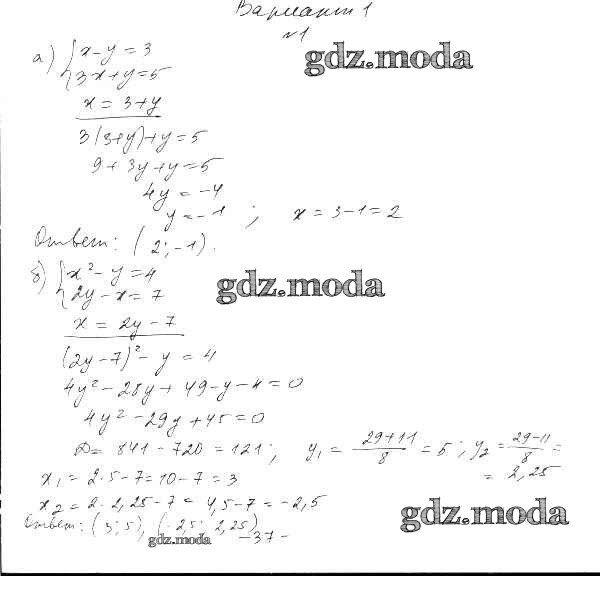 Вариант 1
№1
gdz.moda
а) { x - y = 3
3x + y = 5
x = 3 + y
3(3+y) + y = 5
9 + 3y + y = 5
4y = -4
y = -1 ; x = 3 - 1 = 2
Ответ: (2; -1).
б) { x² - y = 4
2y - x = 7
gdz.moda
x = 2y - 7
(2y - 7)² - y = 4
4y² - 28y + 49 - y - 4 = 0
4y² - 29y + 45 = 0
D = 841 - 720 = 121; y₁ = (29+11)/8 = 5; y₂ = (29-11)/8 =
= 2,25
x₁ = 2·5 - 7 = 10 - 7 = 3
x₂ = 2·2,25 - 7 = 4,5 - 7 = -2,5
gdz.moda
Ответ: (3; 5), (-2,5; 2,25)
gdz.moda
-37-